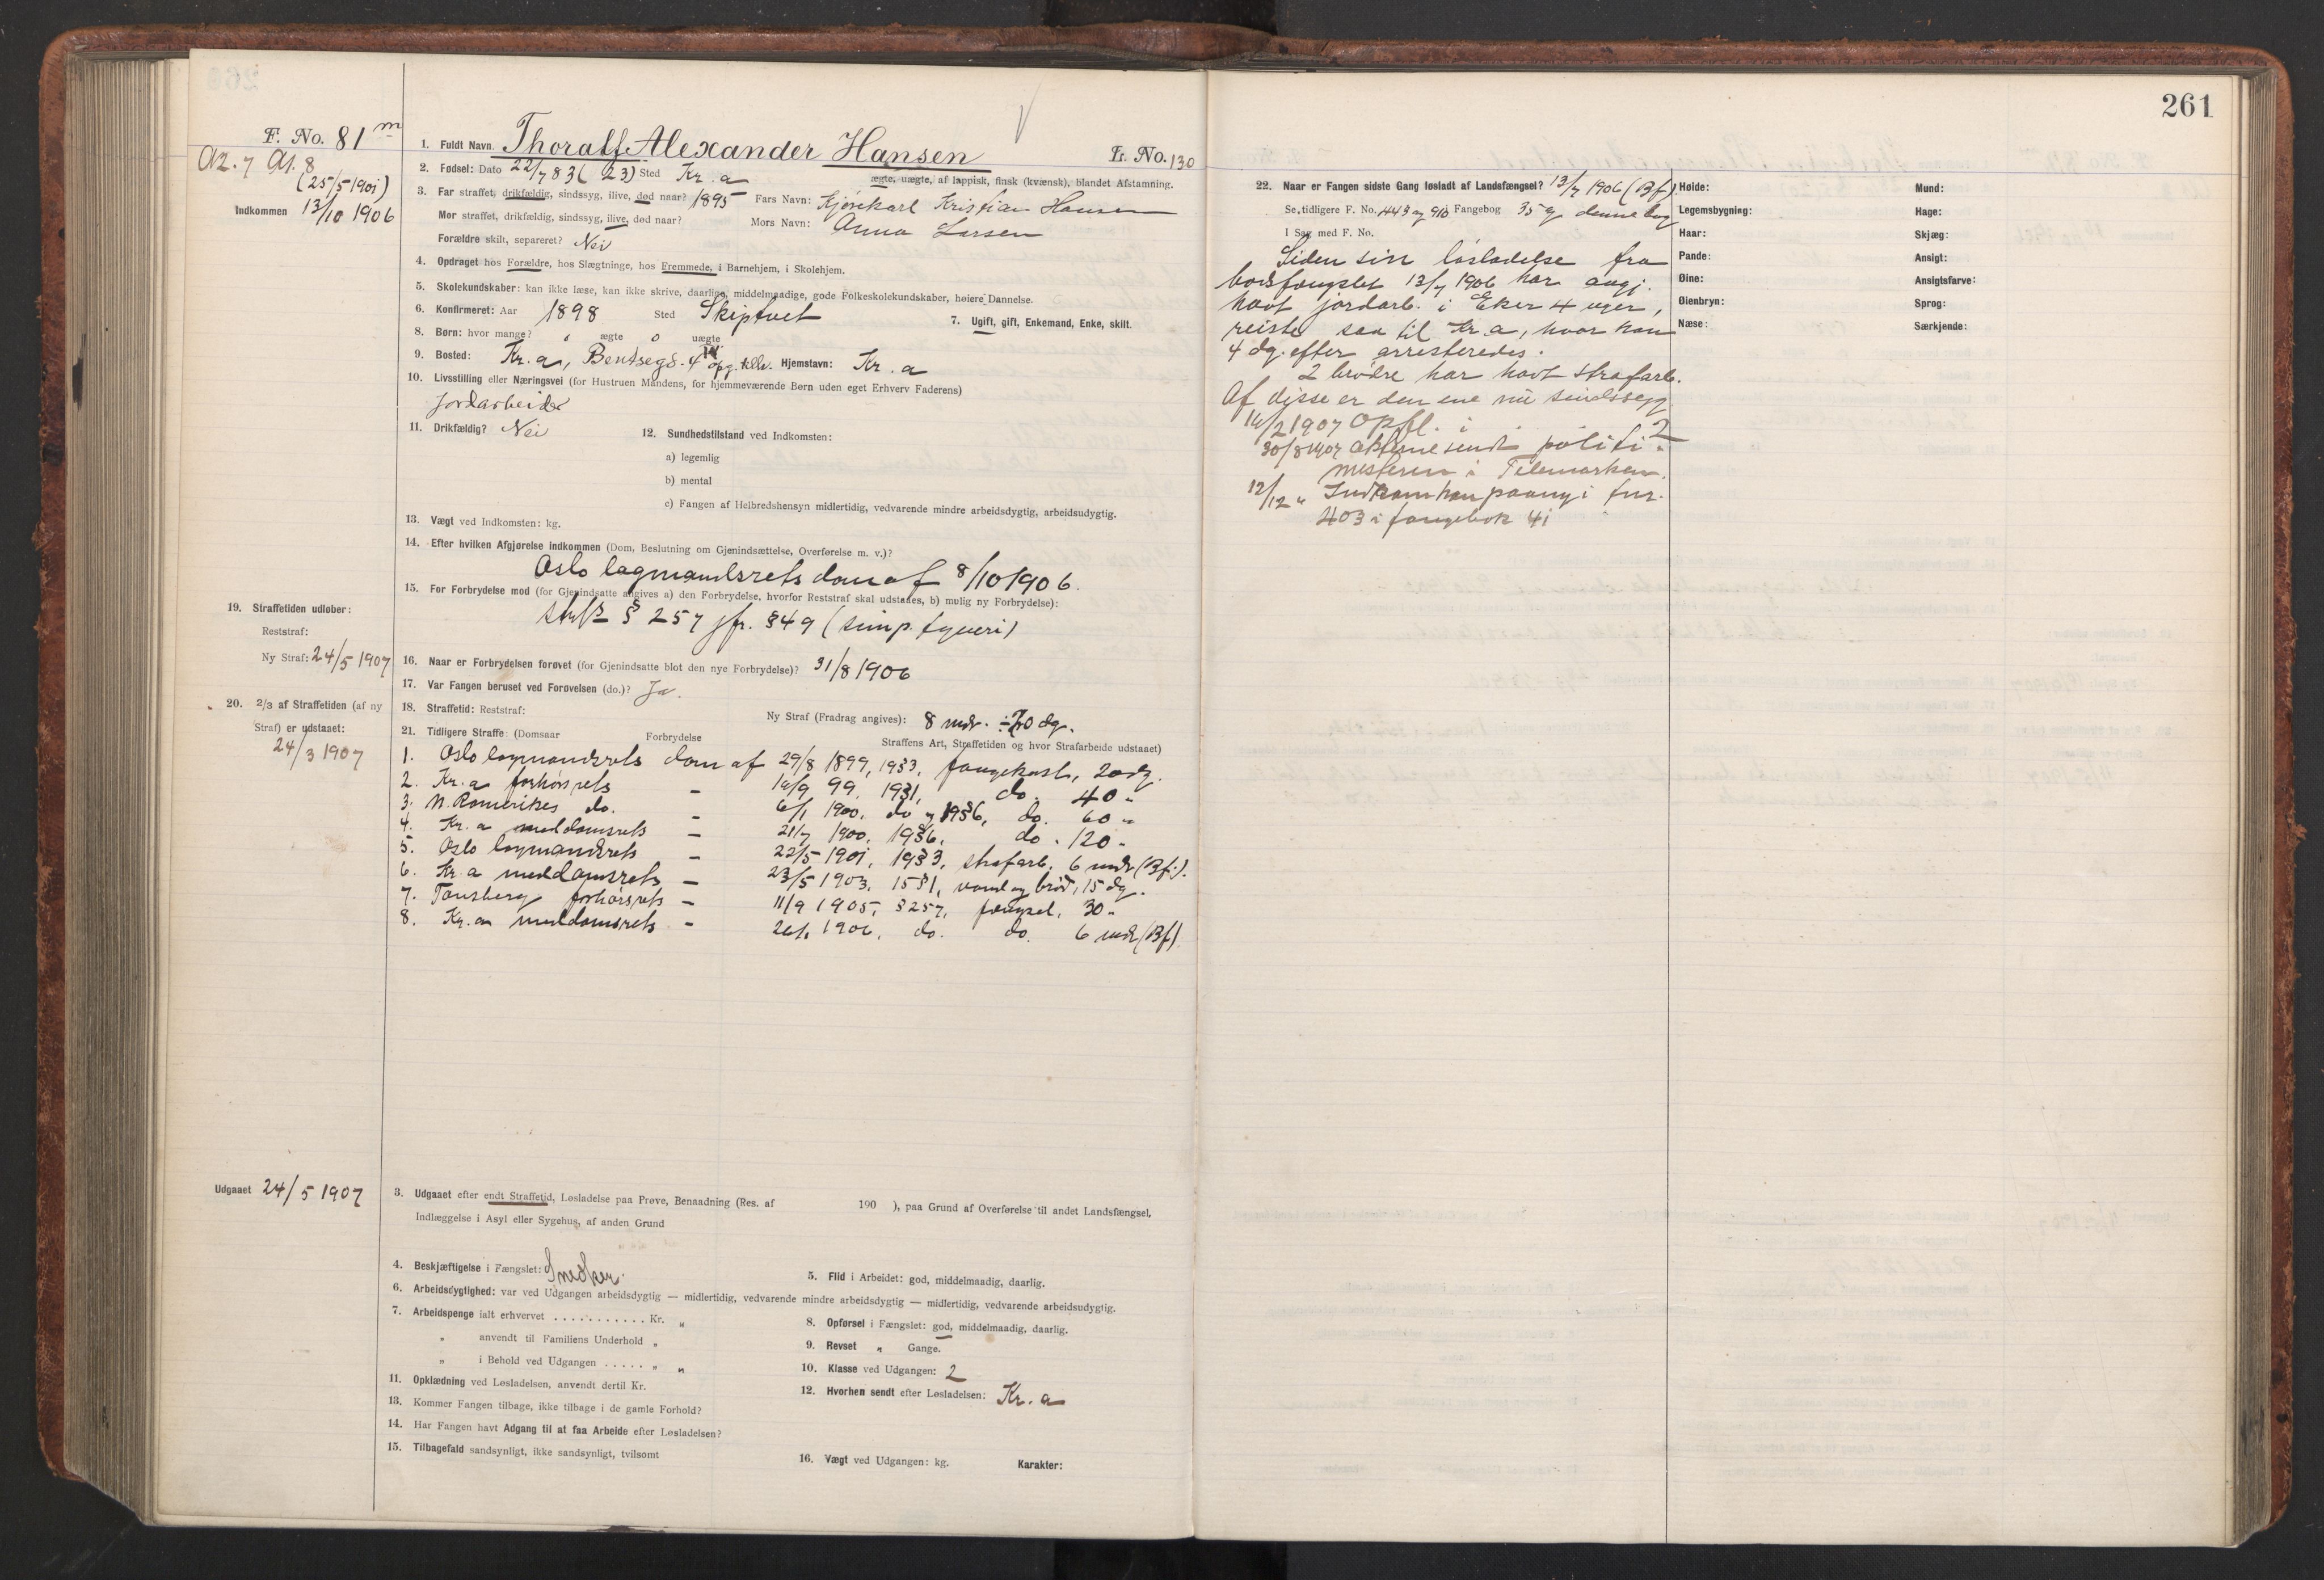 261
F. No. 81 m
A2. 7 A1. 8
(25/5 1901)
Indkommen 13/10 1906
1. Fuldt Navn Thoralf Alexander Hansen L. No. 130
2. Fødsel: Dato 22/7 83 (23) Sted Kr.a ægte, uægte, af lappisk, finsk (kvænsk), blandet Afstamning.
3. Far straffet, drikfældig, sindssyg, ilive, død naar? 1895 Fars Navn: Kjørekarl Kristian Hansen
Mor straffet, drikfældig, sindssyg, ilive, død naar? Mors Navn: Anna Larsen
Forældre skilt, separeret? Nei
4. Opdraget hos Forældre, hos Slægtninge, hos Fremmede, i Barnehjem, i Skolehjem.
5. Skolekundskaber: kan ikke læse, kan ikke skrive, daarlige, middelmaadige, gode Folkeskolekundskaber, høiere Dannelse.
6. Konfirmeret: Aar 1898 Sted Skiptvet 7. Ugift, gift, Enkemand, Enke, skilt.
8. Børn: hvor mange? o ægte o uægte
9. Bosted: Kr.a, Bentsegd. 4 opg. Hjemstavn: Kr.a
10. Livsstilling eller Næringsvei (for Hustruen Mandens, for hjemmeværende Børn uden eget Erhverv Faderens)
Jordarbeider
11. Drikfældig? Nei 12. Sundhedstilstand ved Indkomsten:
a) legemlig
b) mental
c) Fangen af Helbredshensyn midlertidig, vedvarende mindre arbeidsdygtig, arbeidsudygtig.
13. Vægt ved Indkomsten: kg.
14. Efter hvilken Afgjørelse indkommen (Dom, Beslutning om Gjenindsættelse, Overførelse m. v.)?
Oslo lagmandsrets dom af 8/10 1906.
15. For Forbrydelse mod (for Gjenindsatte angives a) den Forbrydelse, hvorfor Reststraf skal udstaaes, b) mulig ny Forbrydelse):
§ 257 jfr. § 49 (simp. tyveri)
19. Straffetiden udløber:
Reststraf:
Ny Straf: 24/5 1907
16. Naar er Forbrydelsen forøvet (for Gjenindsatte blot den nye Forbrydelse)? 31/8 1906
17. Var Fangen beruset ved Forøvelsen (do.)? Ja.
20. 2/3 af Straffetiden (af ny
Straf) er udstaaet:
24/3 1907
18. Straffetid: Reststraf: Ny Straf (Fradrag angives): 8 mdr. ÷ 20 dg.
21. Tidligere Straffe: (Domsaar Forbrydelse Straffens Art, Straffetiden og hvor Strafarbeide udstaaet)
1. Oslo lagmandsrets dom af 29/8 1899, 19§3, fangekost, 20 dg.
2. Kr.a forhørsrets – 16/9 99, 19§1, do. 40 "
3. N. Romerikes do. – 6/1 1900, do og 19§6, do. 60 "
4. Kr.a meddomsrets – 21/7 1900, 19§6, do. 120 "
5. Oslo lagmandsrets – 22/5 1901, 19§3, strafarb. 6 mdr (Bf.).
6. Kr.a meddomsrets – 23/5 1903, 15§1, vand og brød, 15 dg.
7. Tønsberg forhørsrets – 11/9 1905, § 257, fængsel, 30 "
8. Kr.a meddomsrets – 26/1 1906, do. do. 6 mdr (Bf)
Udgaaet 24/5 1907
3. Udgaaet efter endt Straffetid, Løsladelse paa Prøve, Benaadning (Res. af 190 ), paa Grund af Overførelse til andet Landsfængsel,
Indlæggelse i Asyl eller Sygehus, af anden Grund
4. Beskjæftigelse i Fængslet: Snedker. 5. Flid i Arbeidet: god, middelmaadig, daarlig.
6. Arbeidsdygtighed: var ved Udgangen arbeidsdygtig — midlertidig, vedvarende mindre arbeidsdygtig — midlertidig, vedvarende arbeidsudygtig.
7. Arbeidspenge ialt erhvervet . . . . . . . . . . . Kr. " 8. Opførsel i Fængslet: god, middelmaadig, daarlig.
" anvendt til Familiens Underhold " 9. Revset " Gange.
" i Behold ved Udgangen . . . . . " " 10. Klasse ved Udgangen: 2
11. Opklædning ved Løsladelsen, anvendt dertil Kr. 12. Hvorhen sendt efter Løsladelsen: Kr.a
13. Kommer Fangen tilbage, ikke tilbage i de gamle Forhold?
14. Har Fangen havt Adgang til at faa Arbeide efter Løsladelsen?
15. Tilbagefald sandsynligt, ikke sandsynligt, tvilsomt 16. Vægt ved Udgangen: kg. Karakter:
22. Naar er Fangen sidste Gang løsladt af Landsfængsel? 13/7 1906 (Bf)
Se tidligere F. No. 443 og 910 Fangebog 35 og denne bog
I Sag med F. No.
Siden sin løsladelse fra
bodsfængslet 13/7 1906 har angj.
havt jordarb. i Eker 4 uger,
reiste saa til Kr.a, hvor han
4 dg. efter arresteredes.
2 brødre har havt strafarb.
Af disse er den ene nu sindssyg
16/2 1907 Opfl. i 2
30/8 1907 Akterne sendt politi-
mesteren i Telemarken.
12/12 " Indkom han paany i fnr.
403 i fangebok 41
Høide: Mund:
Legemsbygning: Hage:
Haar: Skjæg:
Pande: Ansigt:
Øine: Ansigtsfarve:
Øienbryn: Sprog:
Næse: Særkjende: